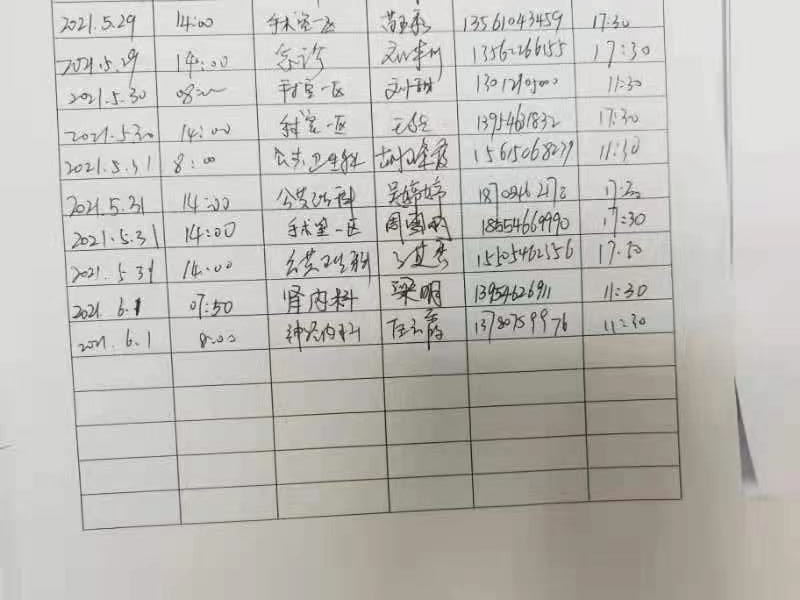 2021.5.29 14:00 手术室一区 13561043459 17:30
2021.5.29 14:00 急诊 13562266155 17:30
2021.5.30 08:00 手术室一区 刘 17:30 11:30
2021.5.30 14:00 手术室一区 13954631832 17:30
2021.5.31 8:00 公共卫生科 15615068239 11:30
2021.5.31 14:00 公共卫生科 吴婷婷 17:30
2021.5.31 14:00 手术室一区 周 18554669990 17:30
2021.5.31 14:00 公共卫生科 15505462556 17:50
2021.6.1 07:50 肾内科 梁明 13954626911 11:30
2021.6.1 8:00 神经内科 13780759976 11:30